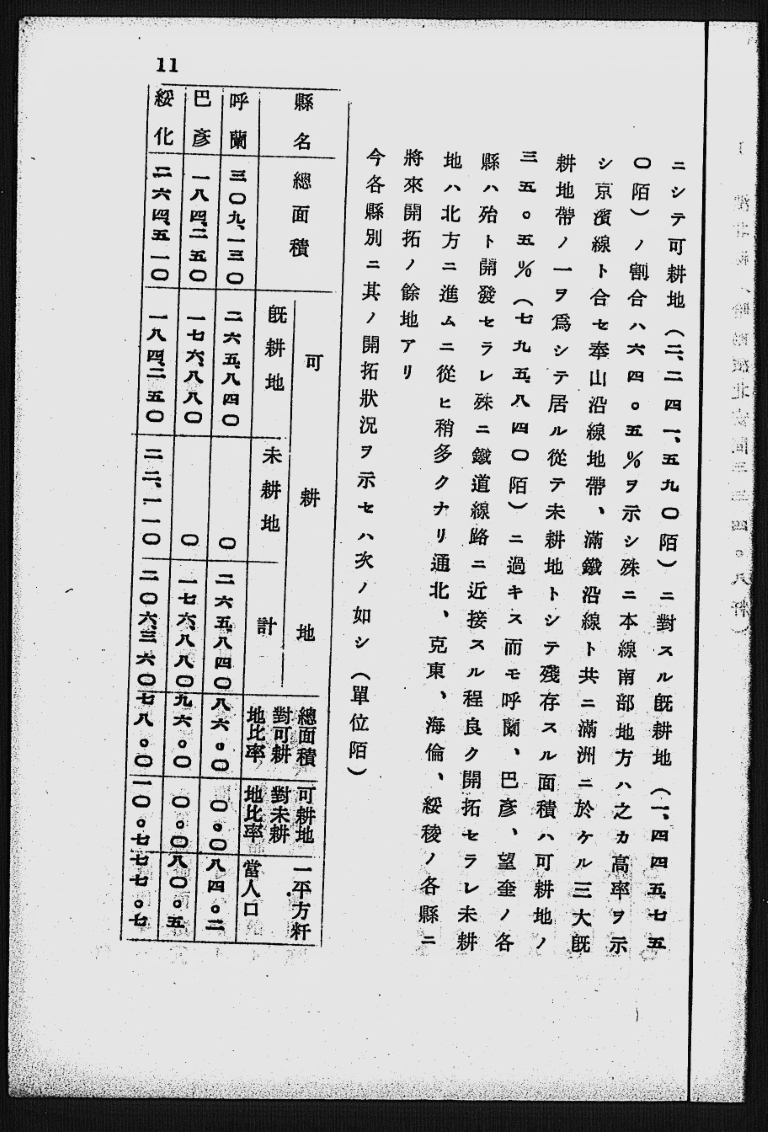 ニシテ可耕地（二、二四一、五九〇陌）ニ對スル既耕地（一、四四五、七五
〇陌）ノ割合ハ六四。五％ヲ示シ殊ニ本線南部地方ハ之カ高率ヲ示
シ京濱線ト合セ奉山沿線地帶、滿鐵沿線ト共ニ滿洲ニ於ケル三大既
耕地帶ノ一ヲ爲シテ居ル從テ未耕地トシテ殘存スル面積ハ可耕地ノ
三五。五％（七九五、八四〇陌）ニ過キス而モ呼蘭、巴彥、望奎ノ各
縣ハ殆ト開發セラレ殊ニ鐵道線路ニ近接スル程良ク開拓セラレ未耕
地ハ北方ニ進ムニ從ヒ稍多クナリ通北、克東、海倫、綏稜ノ各縣ニ
將來開拓ノ餘地アリ
今各縣別ニ其ノ開拓狀況ヲ示セハ次ノ如シ（單位陌）
縣名 總面積 可耕地 既耕地 未耕地 計 總面積對可耕地比率 可耕地對未耕地比率 一平方粁當人口
呼蘭 三〇九、一三〇 二六五、八四〇 〇 二六五、八四〇 八六。〇 〇。〇 八四。二
巴彥 一八四、二五〇 一七六、八八〇 〇 一七六、八八〇 九六。〇 〇。〇 八〇。五
綏化 二六四、五一〇 一八四、二五〇 二二、一一〇 二〇六、三六〇 七八。〇 一〇。七 七七。七
11